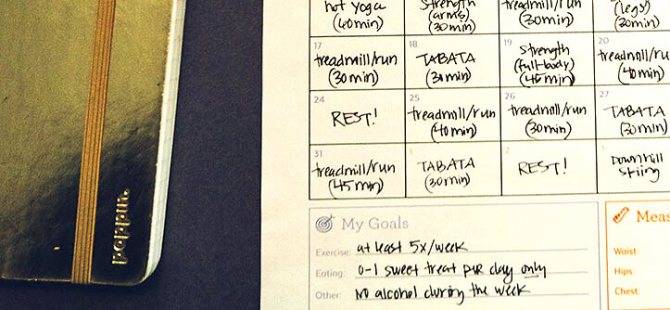 hot yoga
(40min)
strength
(arms)
(30min)
treadmill/run
(30min)
(legs)
(30min)
17
treadmill/run
(30min)
18
TABATA
(30min)
19
strength
(full-body)
(45min)
20
treadmill/ru
(40min)
24
REST!
25
treadmill/run
(40min)
26
treadmill/run
(30min)
27
TABATA
(30min)
31
treadmill/run
(45min)
TABATA
(30min)
REST!
Downhill
skiing
My Goals
Exercise: at least 5x/week
Eating: 0-1 sweet treat per day only
Other: No alcohol during the week
Meas
Waist
Hips
Chest
poppin